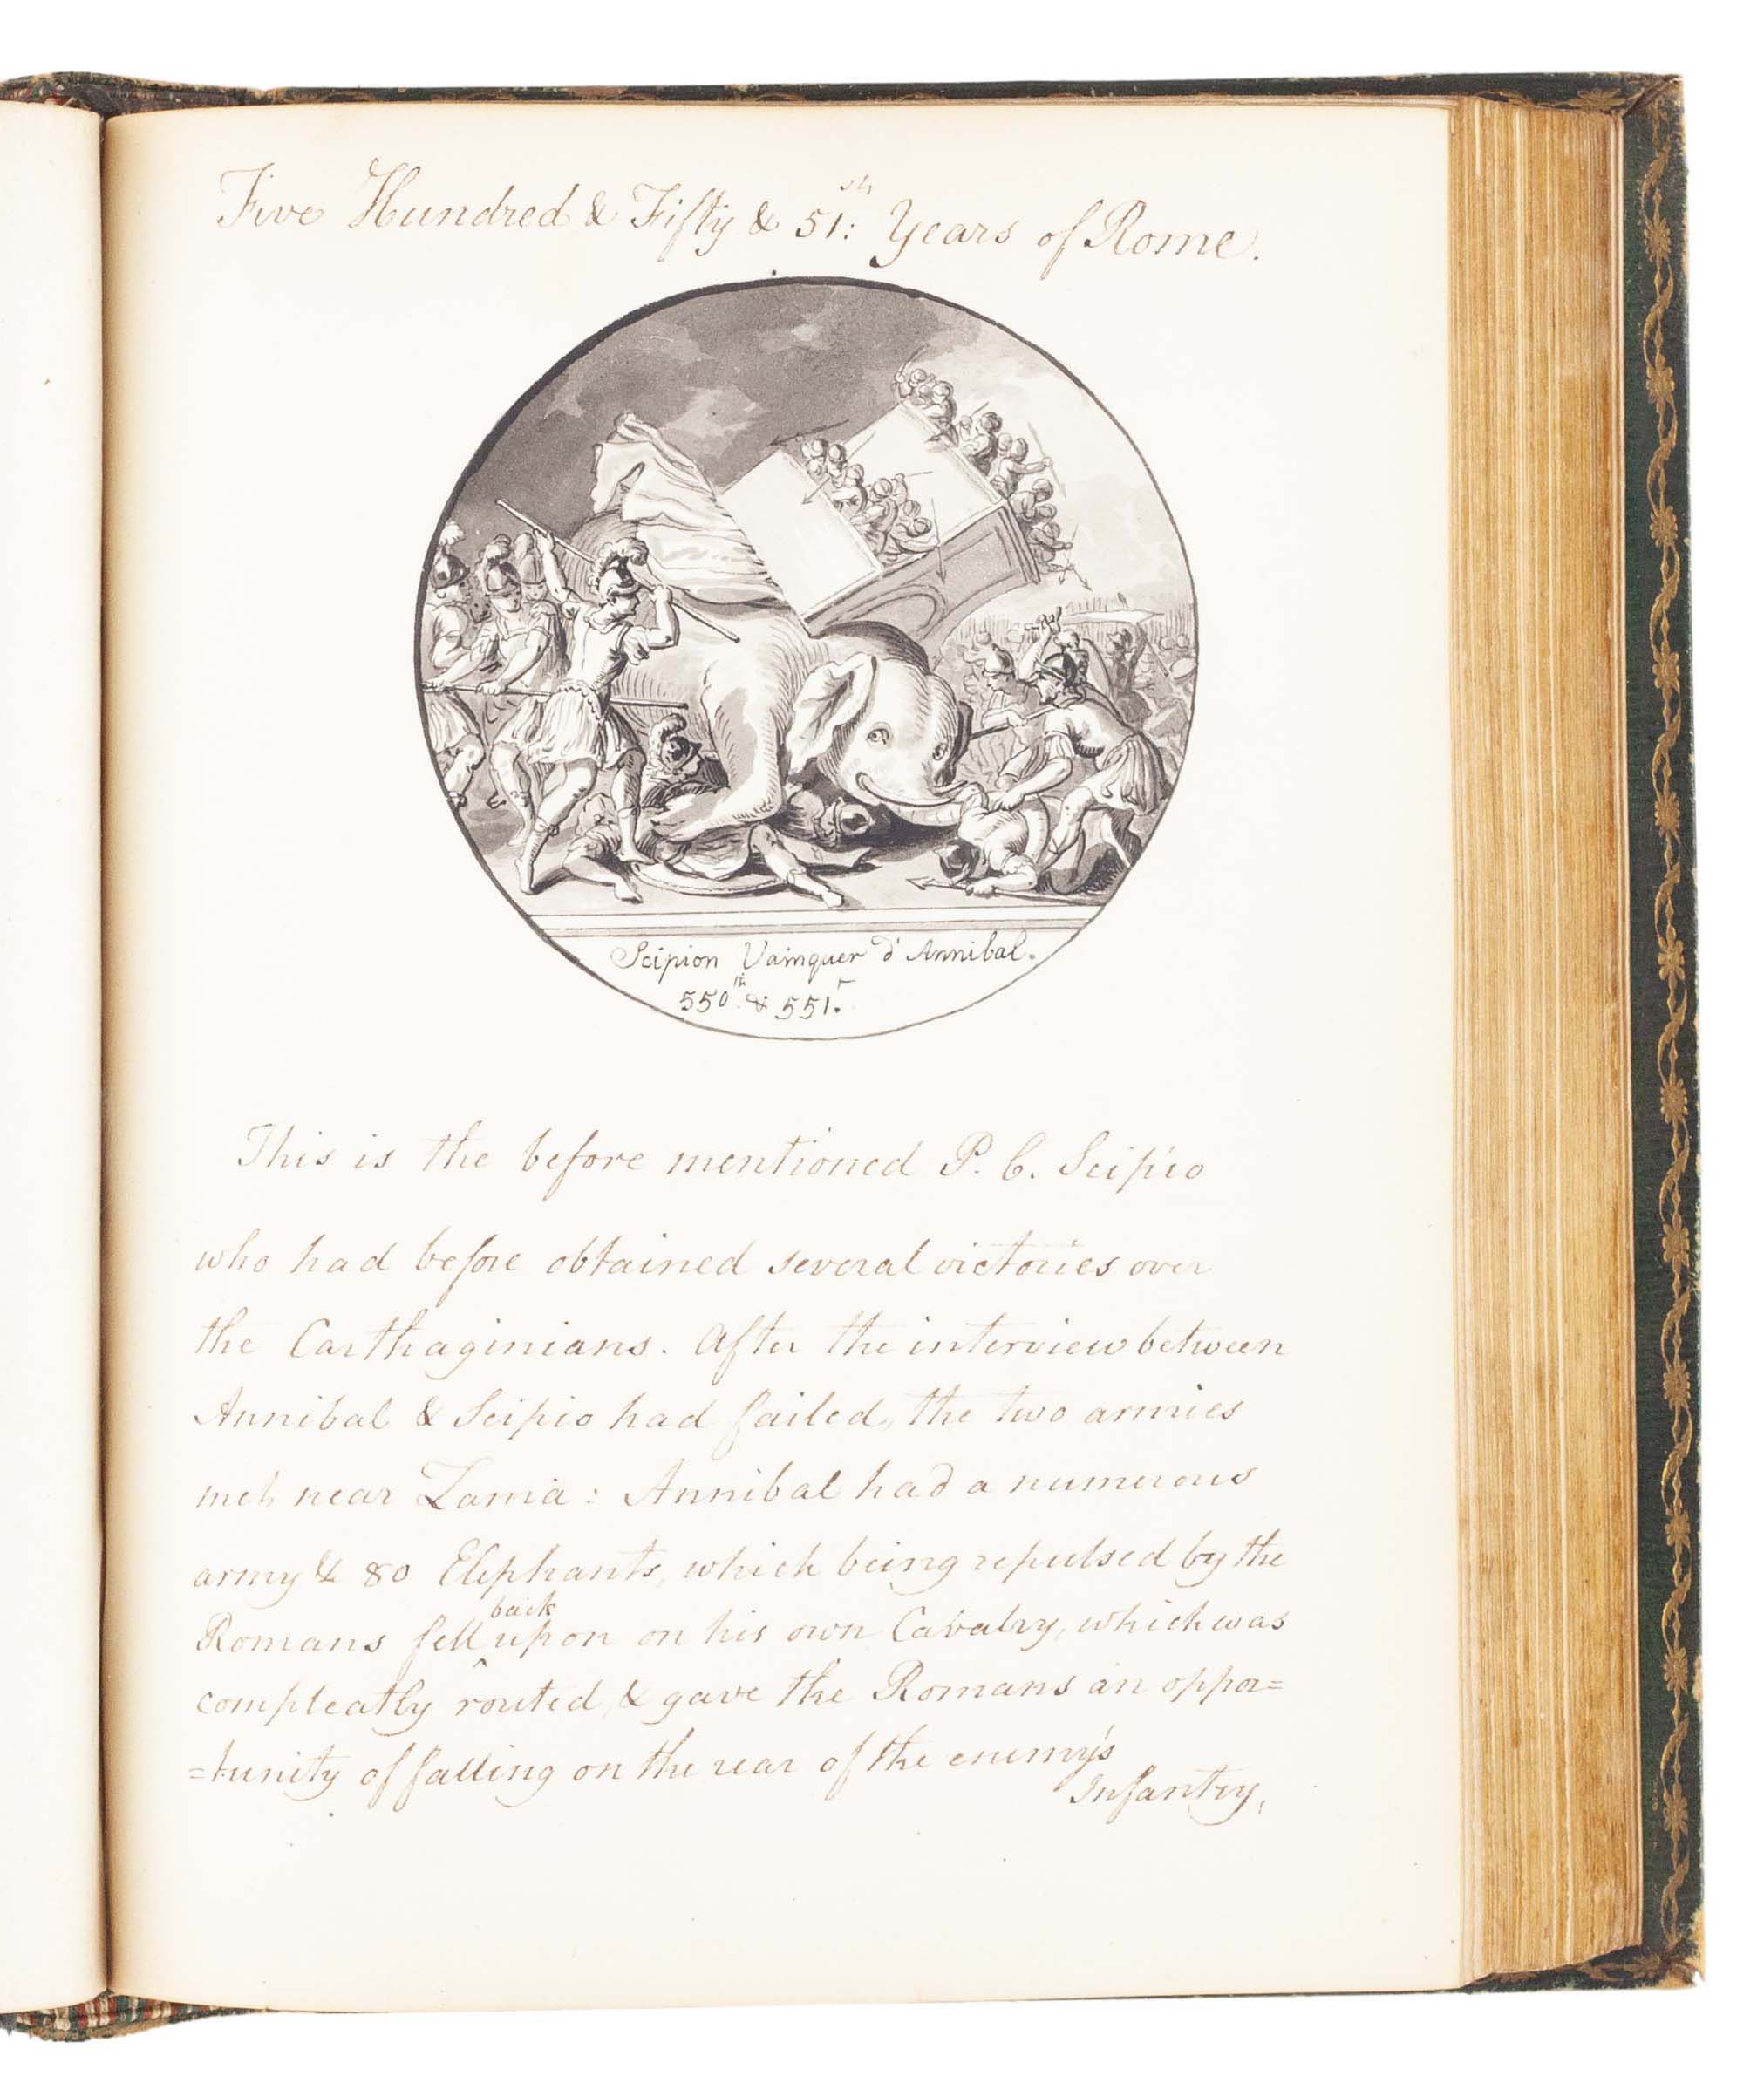 Five Hundred & Fifty & 51:th Years of Rome.
Scipion Vainquer d'Annibal.
550th & 551.r
This is the before mentioned P. C. Scipio
who had before obtained several victories over
the Carthaginians. After the interview between
Annibal & Scipio had failed, the two armies
met near Zama: Annibal had a numerous
army & 80 Elephants, which being repulsed by the
back
Romans fell ^ upon on his own Cavalry, which was
compleatly routed, & gave the Romans an oppor=
=tunity of falling on the rear of the enemy's
Infantry,